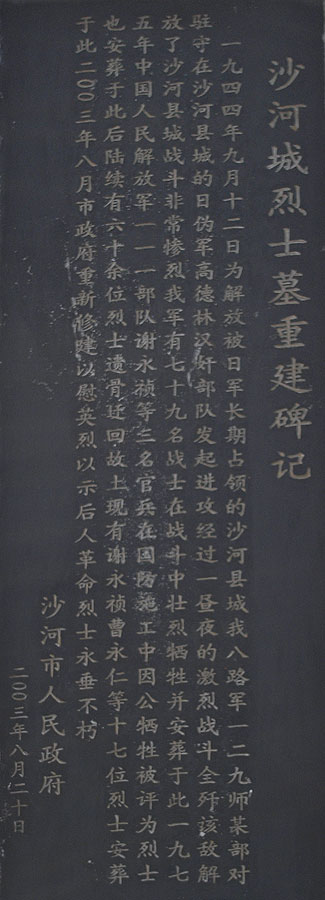 沙河城烈士墓重建碑记
一九四四年九月十二日为解放被日军长期占领的沙河县城我八路军一二九师某部对
驻守在沙河县城的日伪军高德林汉奸部队发起进攻经过一昼夜的激烈战斗全歼该敌解
放了沙河县城战斗非常惨烈我军有七十九名战士在战斗中壮烈牺牲并安葬于此一九七
五年中国人民解放军一一一部队谢永祯等三名官兵在国防施工中因公牺牲被评为烈士
也安葬于此后陆续有六十余位烈士遗骨迁回故土现有谢永祯曹永仁等十七位烈士安葬
于此二00三年八月市政府重新修建以慰英烈以示后人革命烈士永垂不朽
沙河市人民政府
二00三年八月二十日